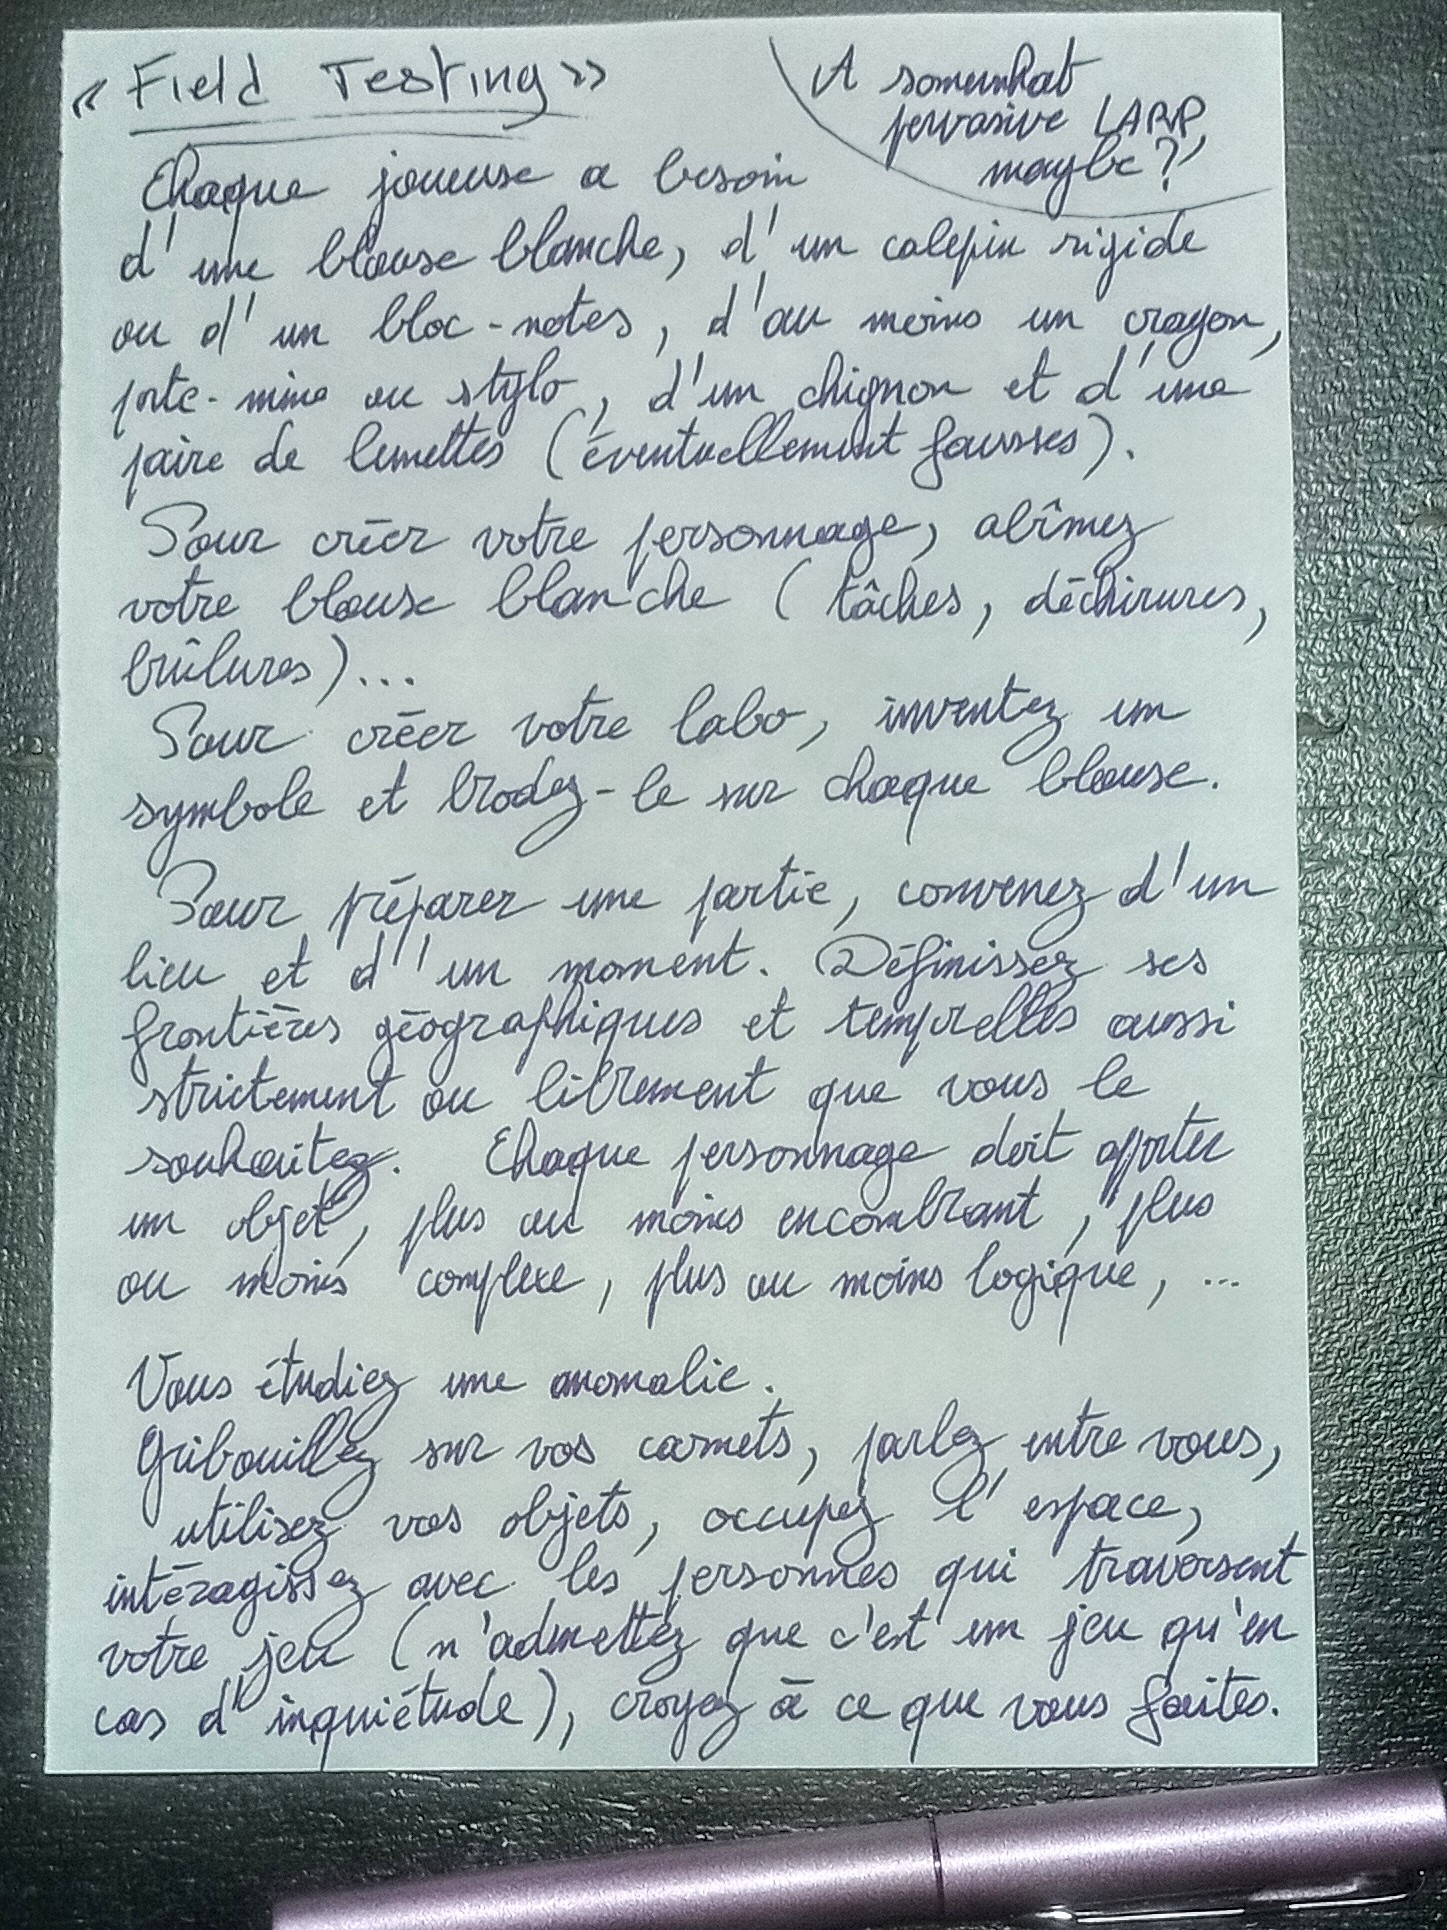 « Field Testing »
A somewhat
pervasive LARP,
maybe?
Chaque joueuse a besoin
d'une blouse blanche, d'un calepin rigide
ou d'un bloc-notes, d'au moins un crayon,
porte-mine ou stylo, d'un chignon et d'une
paire de lunettes (éventuellement fausses).
Pour créer votre personnage, abîmez
votre blouse blanche (tâches, déchirures,
brûlures)...
Pour créer votre labo, inventez un
symbole et brodez-le sur chaque blouse.
Pour préparer une partie, convenez d'un
lieu et d'un moment. Définissez ses
frontières géographiques et temporelles aussi
strictement ou librement que vous le
souhaitez. Chaque personnage doit apporter
un objet, plus ou moins encombrant, plus
ou moins complexe, plus ou moins logique, ...
Vous étudiez une anomalie.
Gribouillez sur vos carnets, parlez entre vous,
utilisez vos objets, occupez l'espace,
intéragissez avec les personnes qui traversent
votre jeu (n'admettez que c'est un jeu qu'en
cas d'inquiétude), croyez à ce que vous faites.